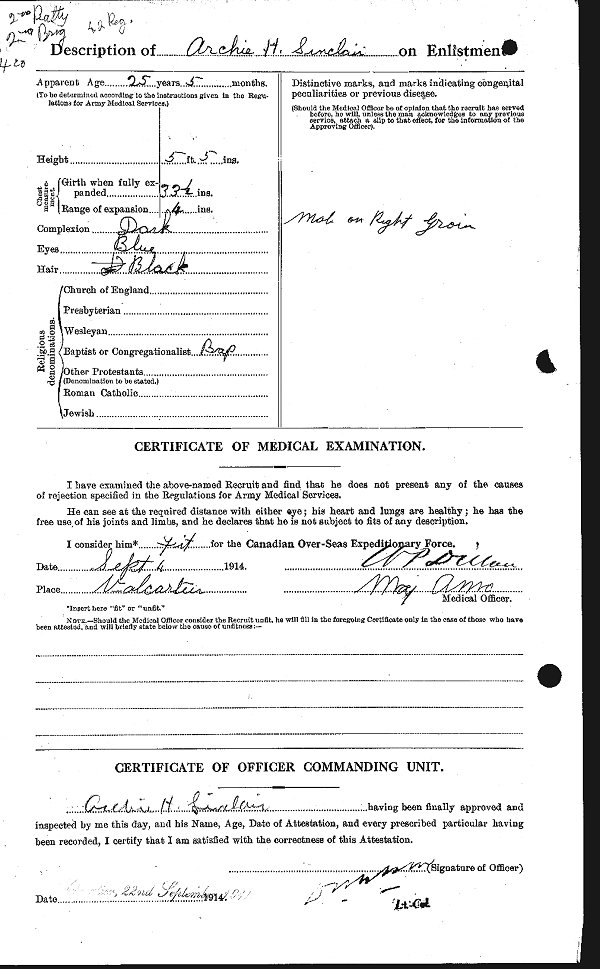 2nd Batty 42 Reg.
2nd Brig
420
Description of Archie H. Sinclair on Enlistment
Apparent Age 25 years 5 months.
(To be determined according to the instructions given in the Regulations for Army Medical Services.)
Height 5 ft. 5 ins.
Chest measurement.
Girth when fully expanded 33½ ins.
Range of expansion 4 ins.
Complexion Dark
Eyes Blue
Hair D Black
Religious denominations.
Church of England
Presbyterian
Wesleyan
Baptist or Congregationalist Bap
Other Protestants
(Denomination to be stated.)
Roman Catholic
Jewish
Distinctive marks, and marks indicating congenital
peculiarities or previous disease.
(Should the Medical Officer be of opinion that the recruit has served
before, he will, unless the man acknowledges to any previous
service, attach a slip to that effect, for the information of the
Approving Officer).
Mole on Right Groin
CERTIFICATE OF MEDICAL EXAMINATION.
I have examined the above-named Recruit and find that he does not present any of the causes
of rejection specified in the Regulations for Army Medical Services.
He can see at the required distance with either eye; his heart and lungs are healthy; he has the
free use of his joints and limbs, and he declares that he is not subject to fits of any description.
I consider him* fit for the Canadian Over-Seas Expeditionary Force.
Date Sept 4 1914.
Place Valcartier
Maj AMC
Medical Officer.
*Insert here "fit" or "unfit."
NOTE.—Should the Medical Officer consider the Recruit unfit, he will fill in the foregoing Certificate only in the case of those who have
been attested, and will briefly state below the cause of unfitness:—
CERTIFICATE OF OFFICER COMMANDING UNIT.
Archie H. Sinclair having been finally approved and
inspected by me this day, and his Name, Age, Date of Attestation, and every prescribed particular having
been recorded, I certify that I am satisfied with the correctness of this Attestation.
(Signature of Officer)
Lt. Col
Date 22nd September 1914.